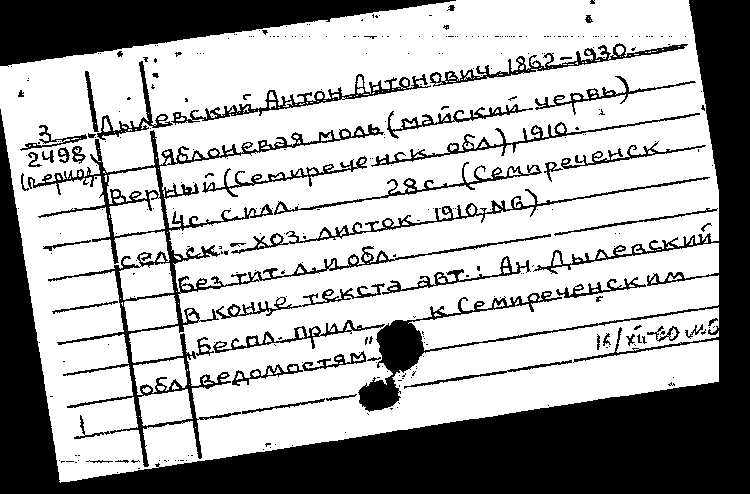 Дылевский, Антон Антонович. 1862-1930.
3
2498
(период.)
Яблоневая моль (майский червь)
Верный (Семиреченск. обл.), 1910.
4с. с илл. 28с. (Семиреченск.
сельск.-хоз. листок 1910, №8).
Без тит. л. и обл.
В конце текста авт.: Ан. Дылевский
„Беспл. прил. к Семиреченским
обл. ведомостям"
16/XII-60 МБ
1